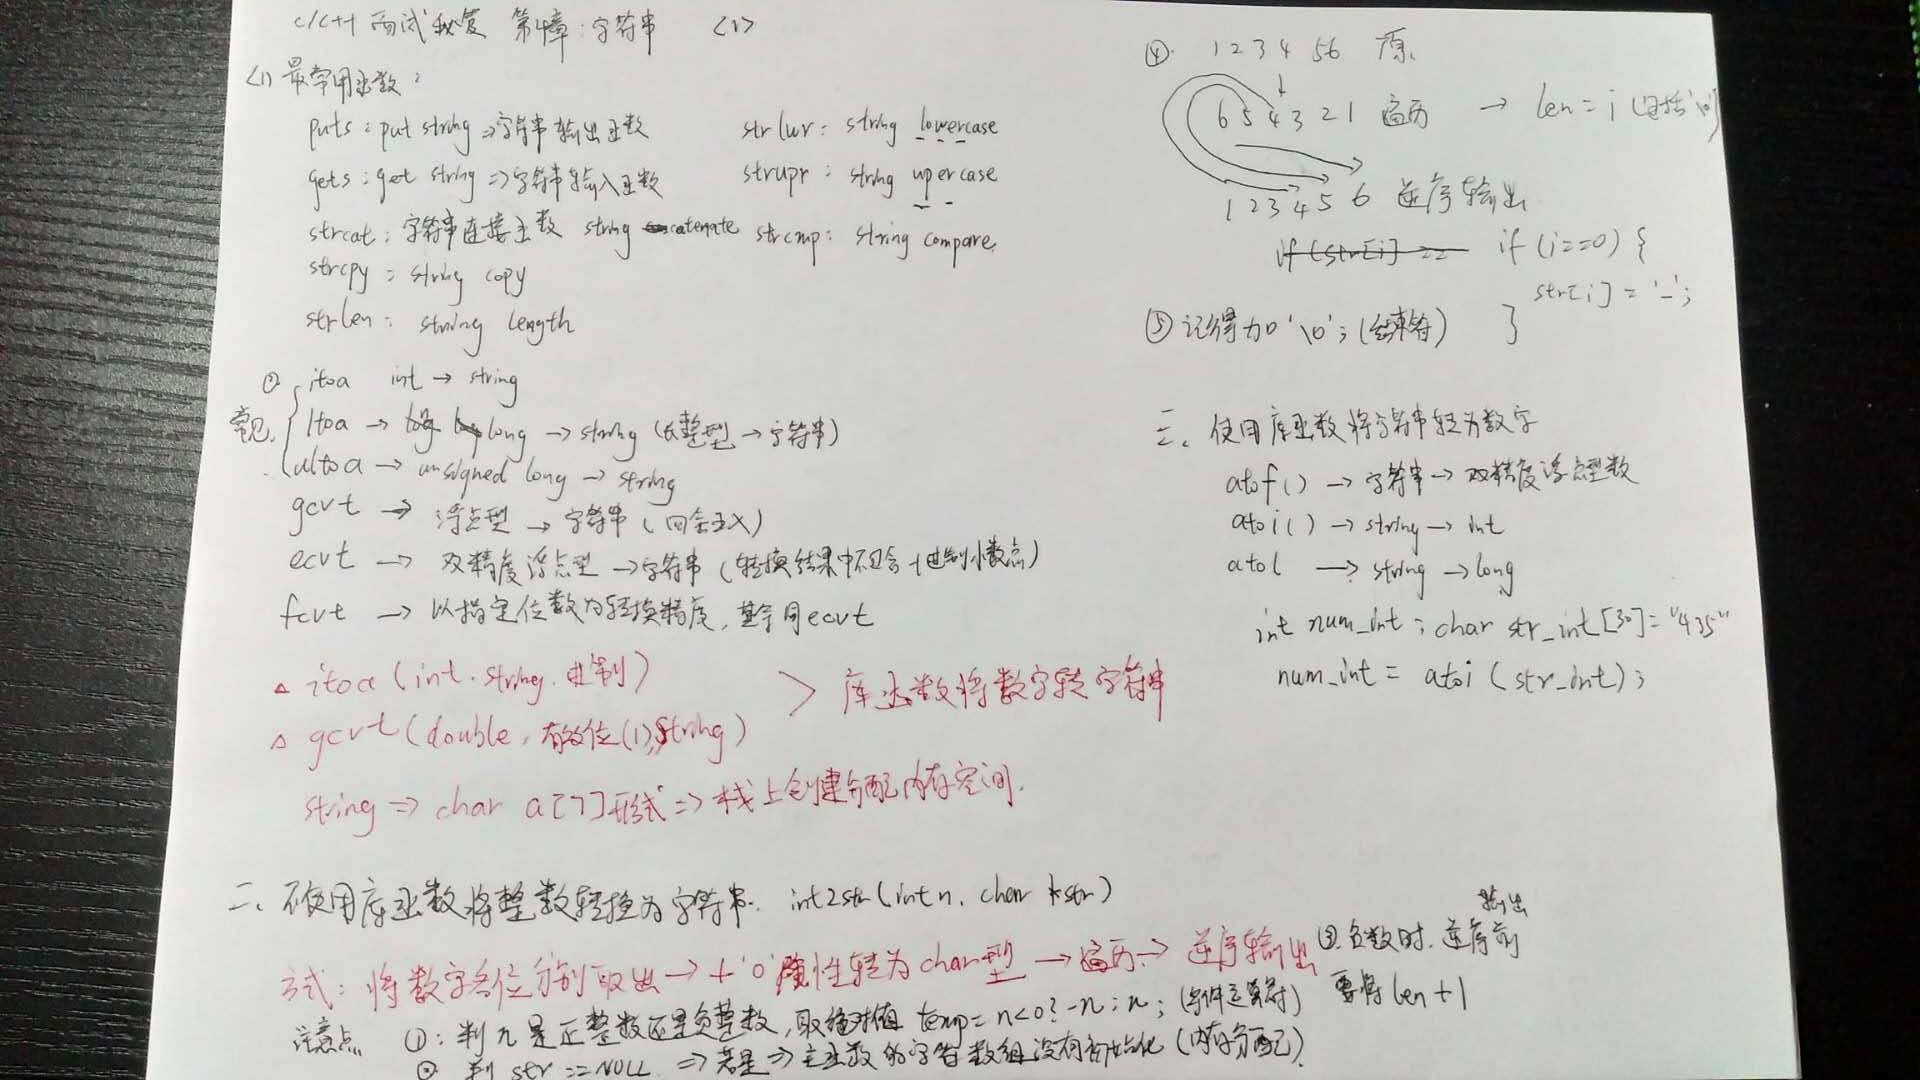 C/C++ 面试秘笈 第4章:字符串 <1>
<1> 最常用函数:
puts: put string => 字符串输出函数
gets: get string => 字符串输入函数
strcat: 字符串连接函数 string catenate
strcpy: string copy
strlen: string length
strlwr: string lowercase
strupr: string upercase
strcmp: string compare
② itoa int → string
常见 ltoa → long → string (长整型 → 字符串)
ultoa → unsigned long → string
gcvt → 浮点型 → 字符串 (四舍五入)
ecvt → 双精度浮点型 → 字符串 (转换结果中不包含十进制小数点)
fcvt → 以指定位数为转换精度, 其余同ecvt
△ itoa (int. string. 进制)
△ gcvt (double, 有效位(1), string)
> 库函数将数字转字符串
string => char a[7]形式 => 栈上创建分配内存空间.
二、不使用库函数将整数转换为字符串. int2str(int n, char *str)
方式: 将数字各位分别取出 → + '0' 隐性转为char型 → 遍历 → 逆序输出
注意点 ①: 判n是正整数还是负整数, 取绝对值 temp = n<0? -n : n; (条件运算符)
② 判 str == NULL => 若是 => 主函数的字符数组没有初始化 (内存分配)
③ 负数时. 逆序前输出
要将 len + 1
④. 1 2 3 4 5 6 原.
6 5 4 3 2 1 遍历 → len = i (包括'\0')
1 2 3 4 5 6 逆序输出
if (str[i] == if (i==0) {
str[i] = '-';
}
⑤ 记得加 '\0'; (结束符)
三、使用库函数将字符串转为数字
atof() → 字符串 → 双精度浮点型数
atoi() → string → int
atol → string → long
int num_int; char str_int[30] = "435"
num_int = atoi (str_int);